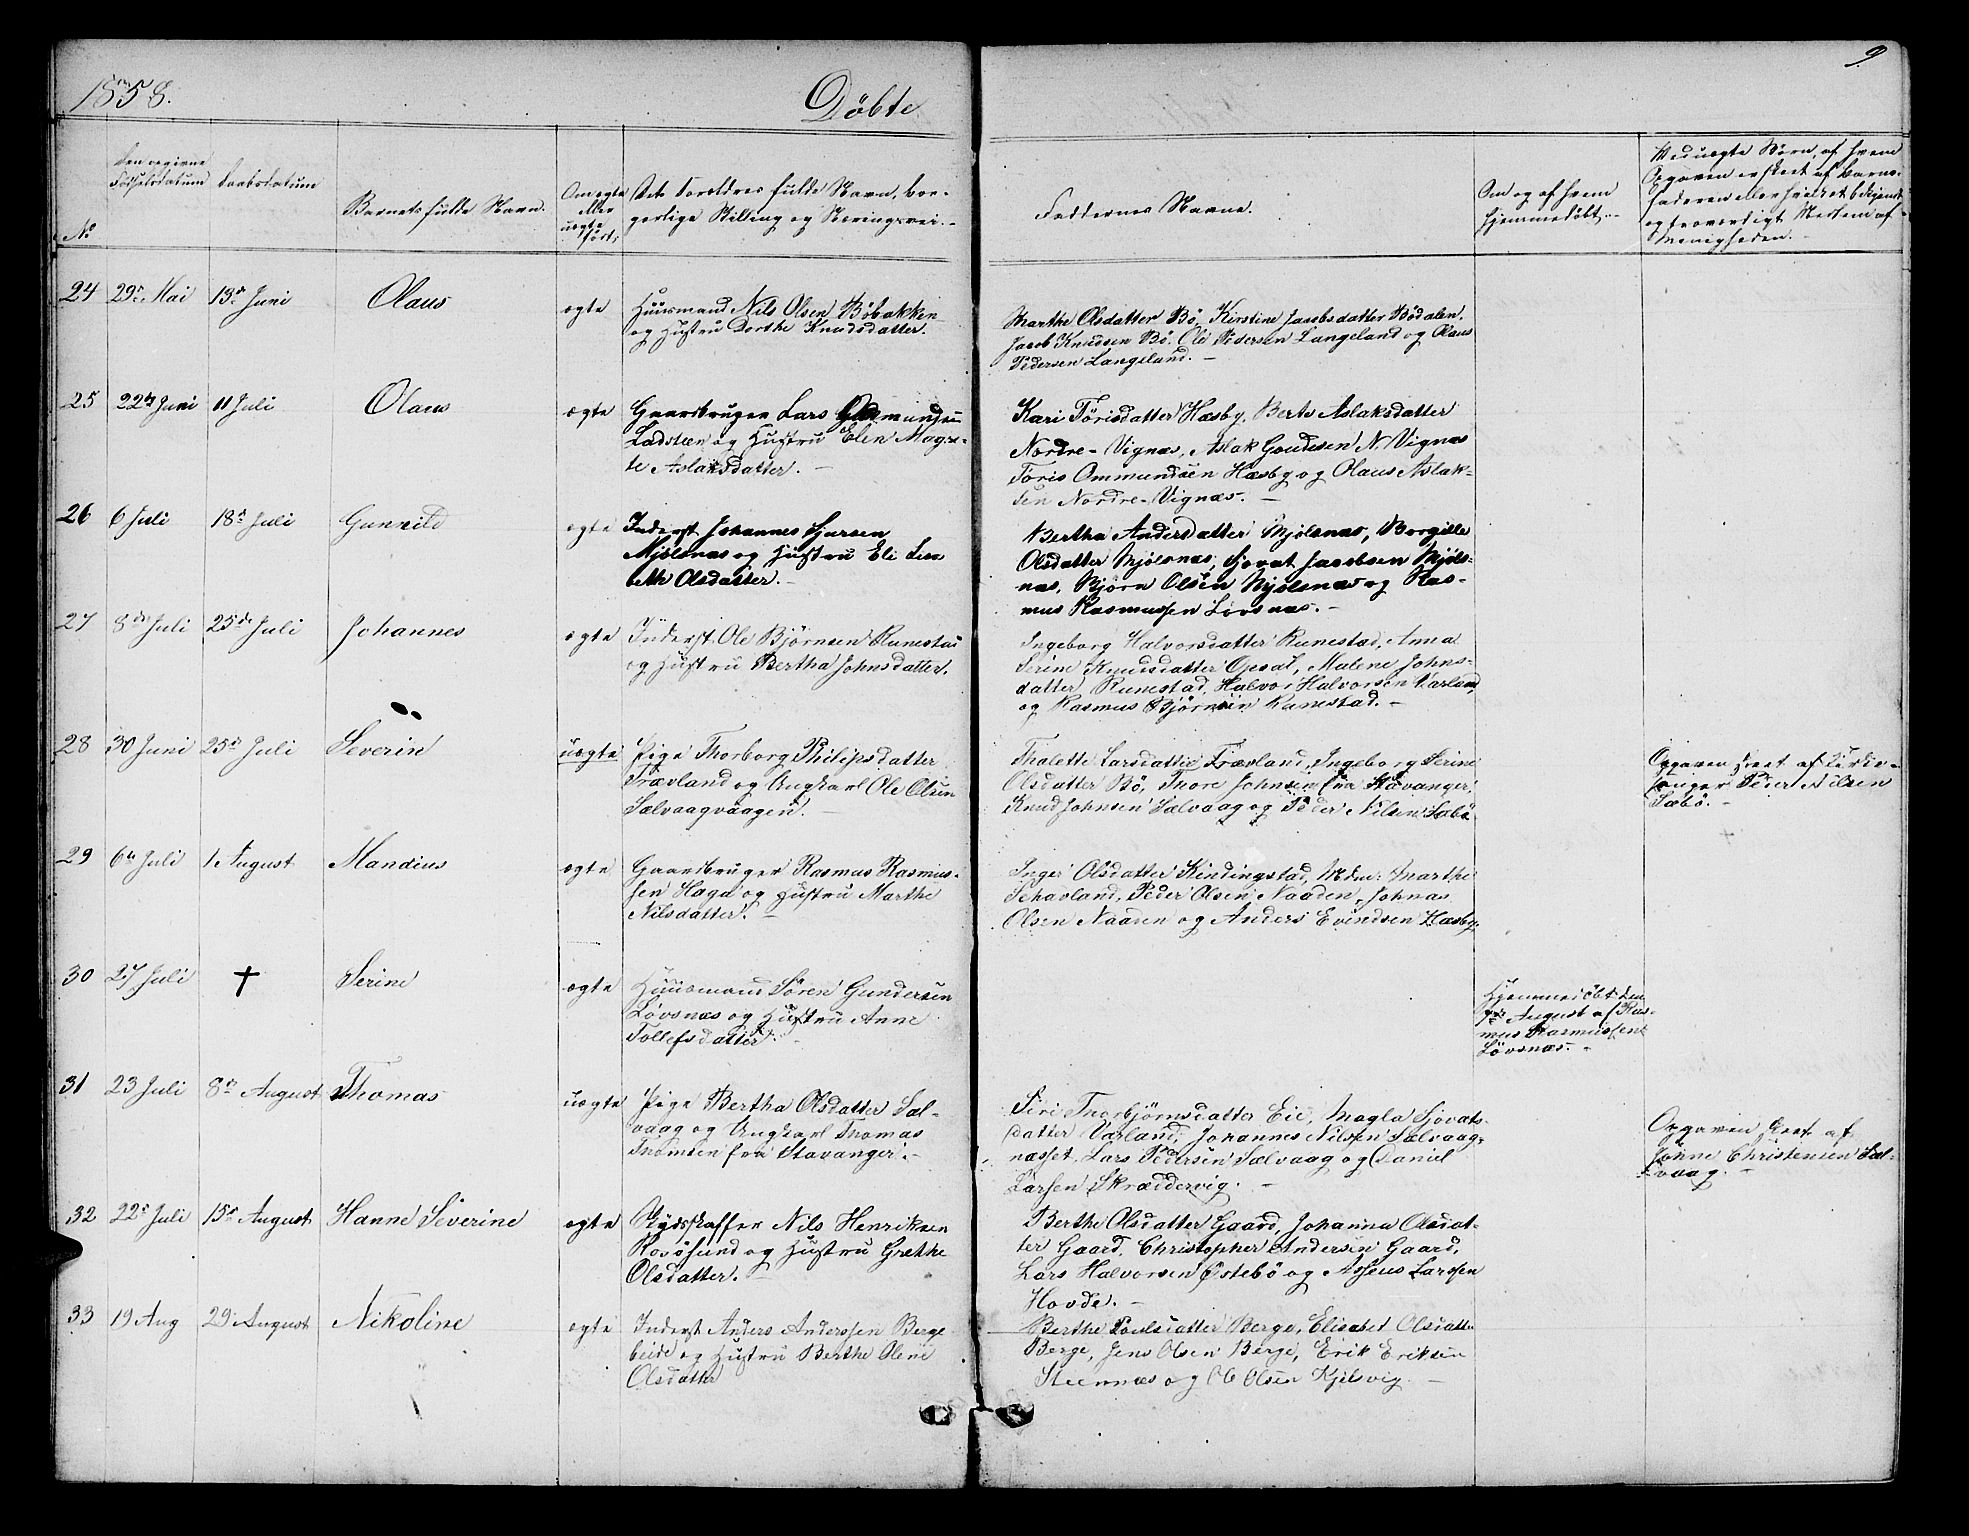 1858.
Döbte
9
No
Den opgivne Födselsdatum
Daabsdatum
Barnets fulde Navn.
Om ægte eller uægte født.
De Forældres fulde Navn, bor-
gerlige Stilling og Næringsvei.-
Faddernes Navne.
Om og af hvem
hjemmedöbt.-
Ved uægte Börn, af hvem
Opgaven er skeet af Barne-
faderen eller hvilket bekjendt
og troværdigt Medlem af
Menigheden.-
24 29de Mai 13de Juni Olaus ægte
Huusmand Nils Olsen Böbakken
og Hustru Dorthe Knudsdatter.
Marthe Olsdatter Bö, Kirstine Jacobsdatter Bödalen,
Jacob Knudsen Bö, Ole Pedersen Langeland og Olaus
Pedersen Langeland.-
25 22de Juni 11 Juli Olaus ægte
Gaardbruger Lars
Ladsteen og Hustru Elen Magre-
te Aslaksdatter.-
Kari Törisdatter Hæsby, Berte Aslaksdatter
Nordre-Vignæs, Aslak Goudesen N. Vignæs
Töris Ommundsen Hæsby og Olaus Aslak-
sen Nordre-Vignæs.-
26 6 Juli 18de Juli Gunnild ægte
Inderst Johannes Sjursen
Mjölsnæs og Hustru Eli Lisa
beth Olsdatter.-
Bertha Andersdatter Mjölsnæs, Borgille
Olsdatter Mjölsnæs, Sjovat Jacobsen Mjöls-
næs, Björn Olsen Mjölsnæs og Ras-
mus Rasmussen Lövsnæs.-
27 8de Juli 25de Juli Johannes ægte
Inderst Ole Björnsen Runestad
og Hustru Bertha Johnsdatter.
Ingeborg Halvorsdatter Runestad, Anna
Serine Knudsdatter Opsal, Malene Johns-
datter Runestad, Halvor Halvorsen Varland
og Rasmus Björnsen Runestad.-
28 30 Juni 25de Juli Severin uægte
Pige Thorborg Philipsdatter
Trævland og Ungkarl Ole Olsen
Salvaagvaagen.-
Thalette Larsdatter Trævland, Ingeborg Serine
Olsdatter Bö, Thore Johnsen fra Stavanger,
Knud Johnsen Salvaag og Peder Nilsen Sæbö
Opgaven skeet af Kirke-
sanger Peder Nilsen
Sæbö.-
29 6te Juli 1 August Mandius ægte
Gaardbruger Rasmus Rasmus-
sen Haga og Hustru Marthe
Nilsdatter.-
Inger Olsdatter Kindingstad, Mdm: Marthe
Schavland, Peder Olsen Naaden, Johnas
Olsen Naaden og Anders Evindsen Hæsby.
30 27 Juli † Serine ægte
Huusmand Sören Gundersen
Lövsnæs og Hustru Anne
Tollefsdatter.-
Hjemmedöbt den
August af Ras-
mus Rasmussen
Lövsnæs.-
31 23 Juli 8de August Thomas uægte
Pige Bertha Olsdatter Sal-
vaag og Ungkarl Thomas
Thomsen fra Stavanger.-
Siri Thorbjörnsdatter Eie, Magla Sjovats-
datter Varland, Johannes Nilsen Salvaag-
næsset, Lars Pedersen Salvaag og Daniel
Larsen Skrædervig.-
Opgaven skeet af
Christensen Sal-
vaag.-
32 22de Juli 15de August Hanne Severine ægte
Skydsskaffer Nils Henriksen
Rosösund og Hustru Grethe
Olsdatter.-
Berthe Olsdatter Gaard, Johanna Olsdat-
ter Gaard, Christopher Andersen Gaard,
Lars Halvorsen Östebö og Asseus Larssen
Hovde.-
33 19 Aug 29 August Nikoline ægte
Inderst Anders Anderssen Berge
beide og Hustru Berthe Olene
Olsdatter
Berthe Poulsdatter Berge, Elisabet Olsdatter
Berge, Jens Olsen Berge, Erik Eriksen
Steennæs og Ole Olsen Kjelsvig.-